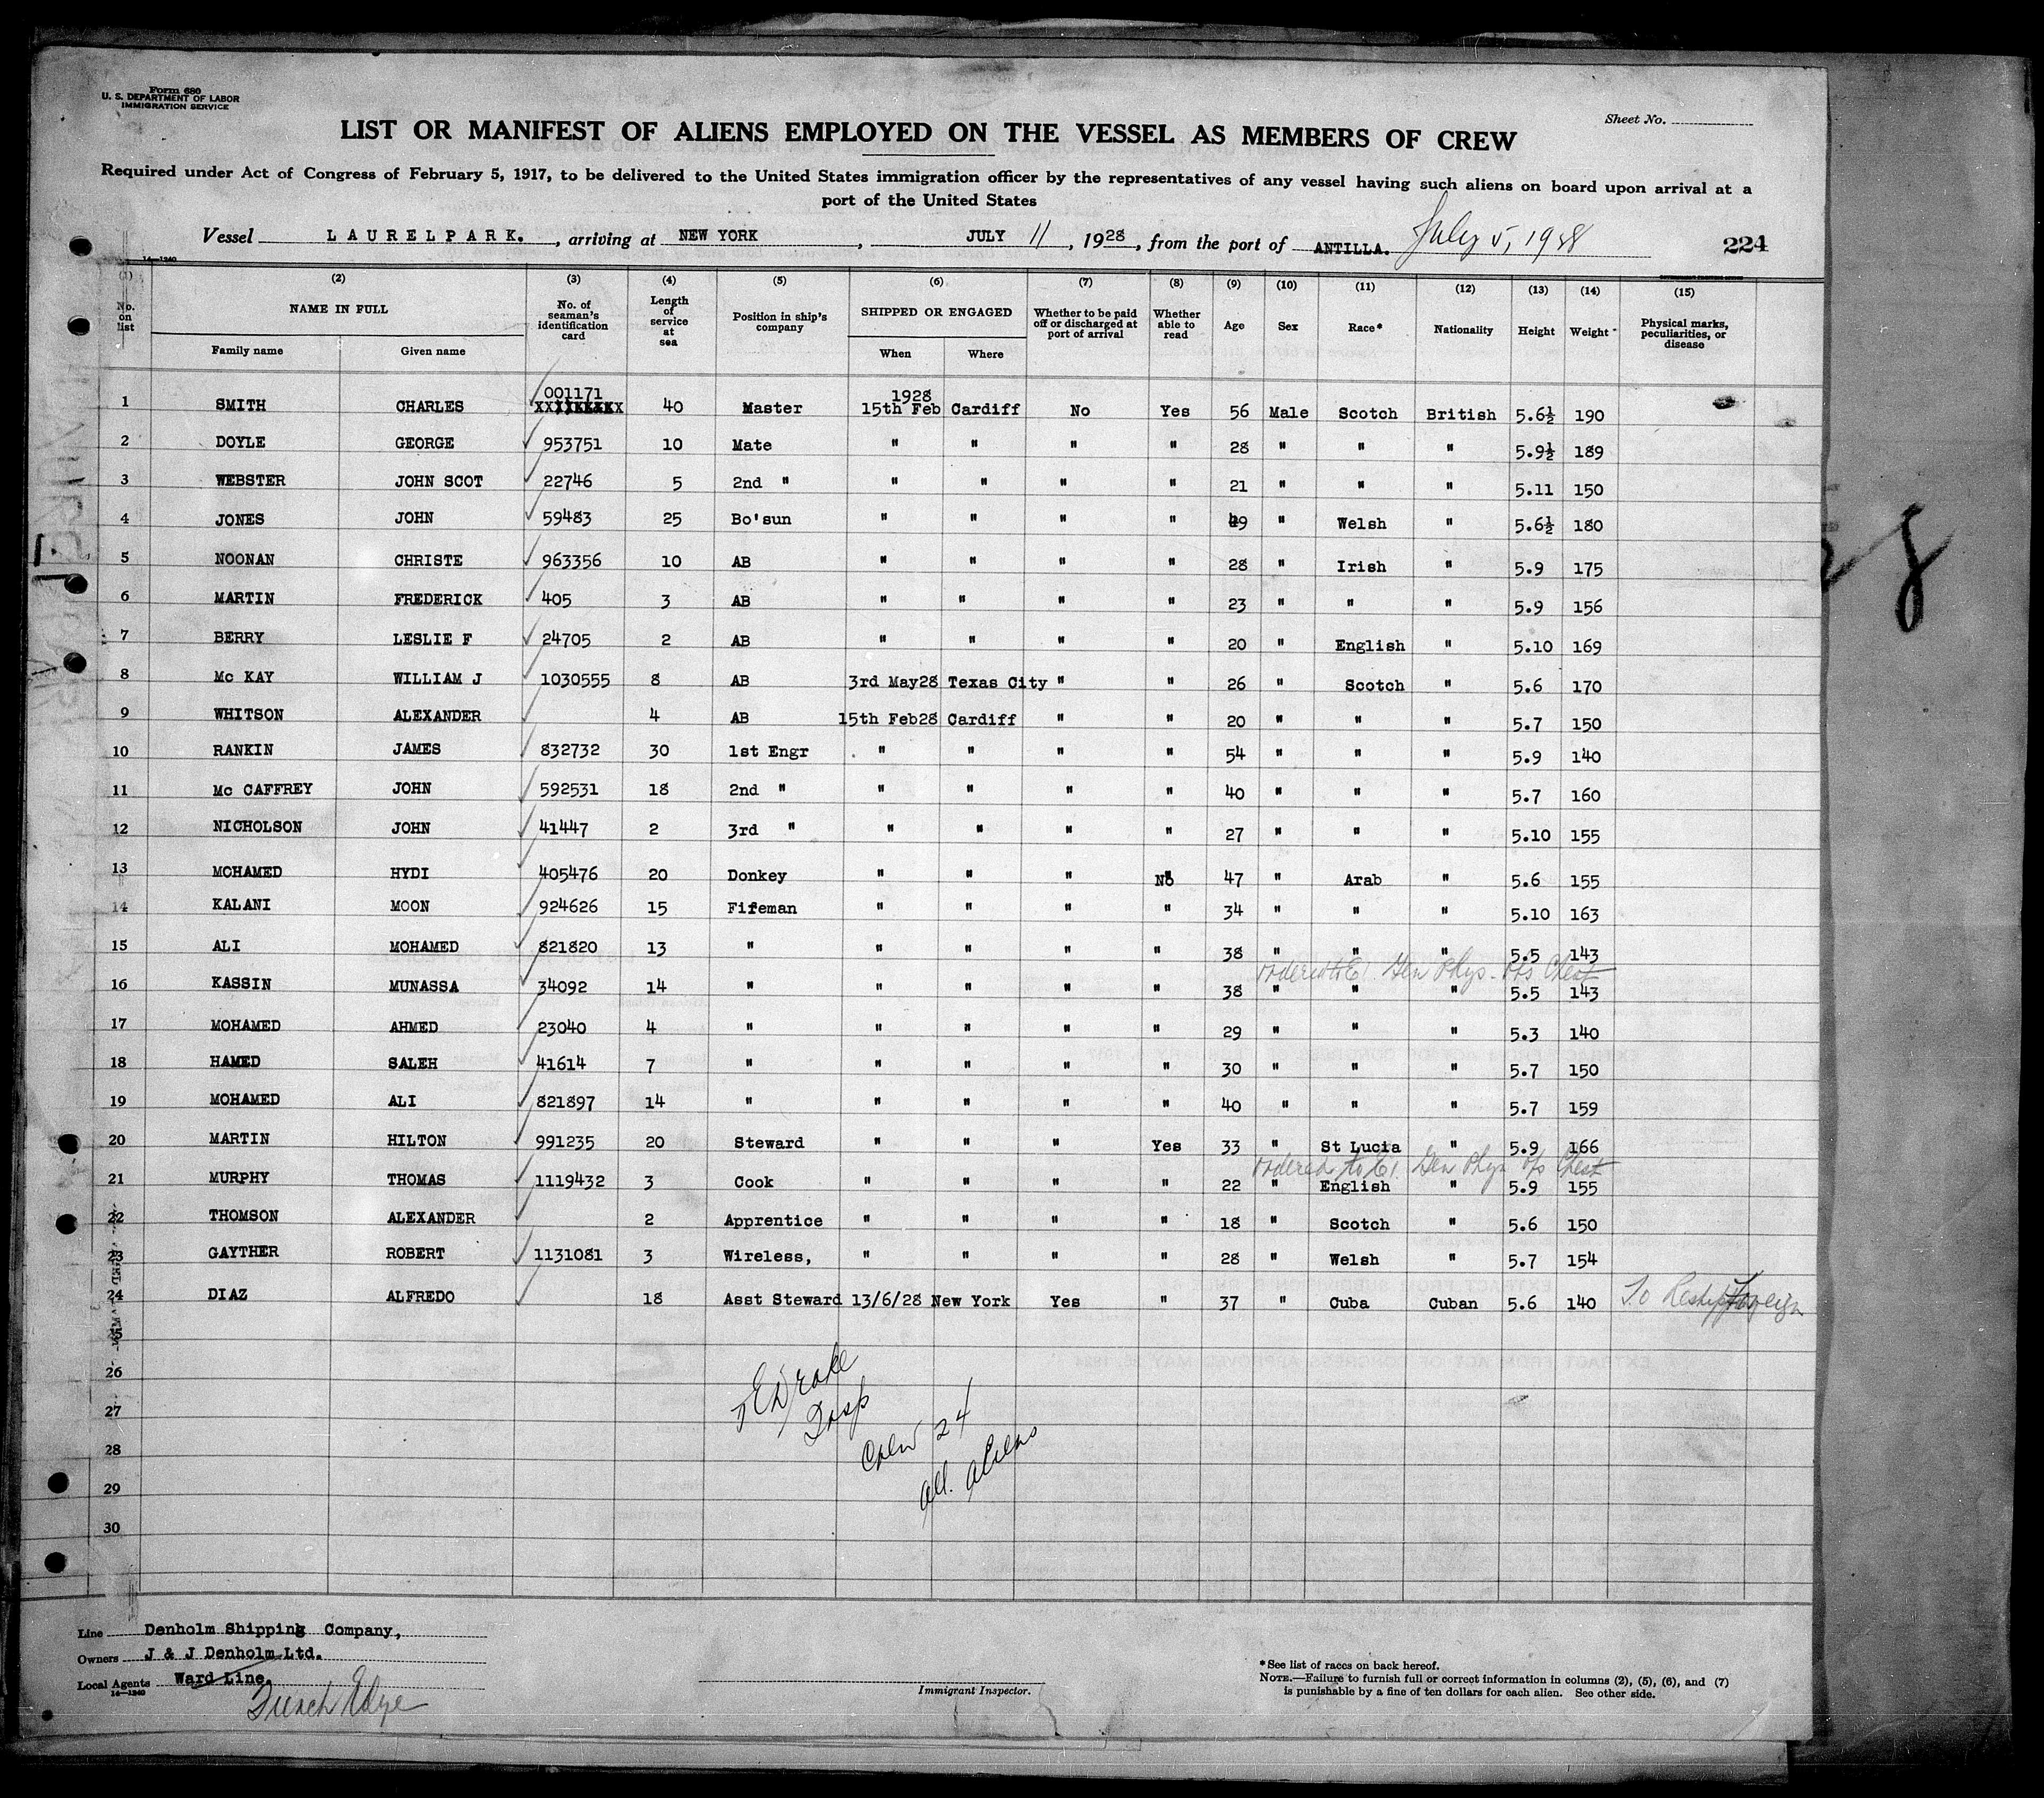 Form 680
U. S. DEPARTMENT OF LABOR
IMMIGRATION SERVICE
Sheet No.
LIST OR MANIFEST OF ALIENS EMPLOYED ON THE VESSEL AS MEMBERS OF CREW
Required under Act of Congress of February 5, 1917, to be delivered to the United States immigration officer by the representatives of any vessel having such aliens on board upon arrival at a
port of the United States
Vessel LAURELPARK. , arriving at NEW YORK , JULY 11 , 1928 , from the port of ANTILLA. July 5, 1928 224
14—1240
(1) (2) (3) (4) (5) (6) (7) (8) (9) (10) (11) (12) (13) (14) (15)
No. on list NAME IN FULL Family name Given name No. of seaman's identification card Length of service at sea Position in ship's company SHIPPED OR ENGAGED When Where Whether to be paid off or discharged at port of arrival Whether able to read Age Sex Race* Nationality Height Weight Physical marks, peculiarities, or disease
1 SMITH CHARLES 001171 40 Master 1928 15th Feb Cardiff No Yes 56 Male Scotch British 5.6½ 190
2 DOYLE GEORGE 953751 10 Mate " " " " 28 " " " 5.9½ 189
3 WEBSTER JOHN SCOT 22746 5 2nd " " " " " 21 " " " 5.11 150
4 JONES JOHN 59483 25 Bo'sun " " " " 49 " Welsh " 5.6½ 180
5 NOONAN CHRISTE 963356 10 AB " " " " 28 " Irish " 5.9 175
6 MARTIN FREDERICK 405 3 AB " " " " 23 " " " 5.9 156
7 BERRY LESLIE F 24705 2 AB " " " " 20 " English " 5.10 169
8 Mc KAY WILLIAM J 1030555 8 AB 3rd May28 Texas City " " 26 " Scotch " 5.6 170
9 WHITSON ALEXANDER 4 AB 15th Feb28 Cardiff " " 20 " " " 5.7 150
10 RANKIN JAMES 832732 30 1st Engr " " " " 54 " " " 5.9 140
11 Mc CAFFREY JOHN 592531 18 2nd " " " " " 40 " " " 5.7 160
12 NICHOLSON JOHN 41447 2 3rd " " " " " 27 " " " 5.10 155
13 MOHAMED HYDI 405476 20 Donkey " " " No 47 " Arab " 5.6 155
14 KALANI MOON 924626 15 Fifeman " " " " 34 " " " 5.10 163
15 ALI MOHAMED 821820 13 " " " " " 38 " " " 5.5 143
ordered to E.I. Gen Phys. Obs Chest
16 KASSIN MUNASSA 34092 14 " " " " " 38 " " " 5.5 143
17 MOHAMED AHMED 23040 4 " " " " " 29 " " " 5.3 140
18 HAMED SALEH 41614 7 " " " " " 30 " " " 5.7 150
19 MOHAMED ALI 821897 14 " " " " " 40 " " " 5.7 159
20 MARTIN HILTON 991235 20 Steward " " " Yes 33 " St Lucia " 5.9 166
ordered to E.I. Gen Phys Chest
21 MURPHY THOMAS 1119432 3 Cook " " " " 22 " English " 5.9 155
22 THOMSON ALEXANDER 2 Apprentice " " " " 18 " Scotch " 5.6 150
23 GAYTHER ROBERT 1131081 3 Wireless, " " " " 28 " Welsh " 5.7 154
24 DIAZ ALFREDO 18 Asst Steward 13/6/28 New York Yes " 37 " Cuba Cuban 5.6 140 To Reship Foreign
25
26
27
28
29
30
Drake
Insp
Crew 24
all. aliens
Line Denholm Shipping Company,
Owners J & J Denholm Ltd.
Local Agents Ward Line
14—1240
Funch Edye
Immigrant Inspector.
*See list of races on back hereof.
NOTE.—Failure to furnish full or correct information in columns (2), (5), (6), and (7)
is punishable by a fine of ten dollars for each alien. See other side.